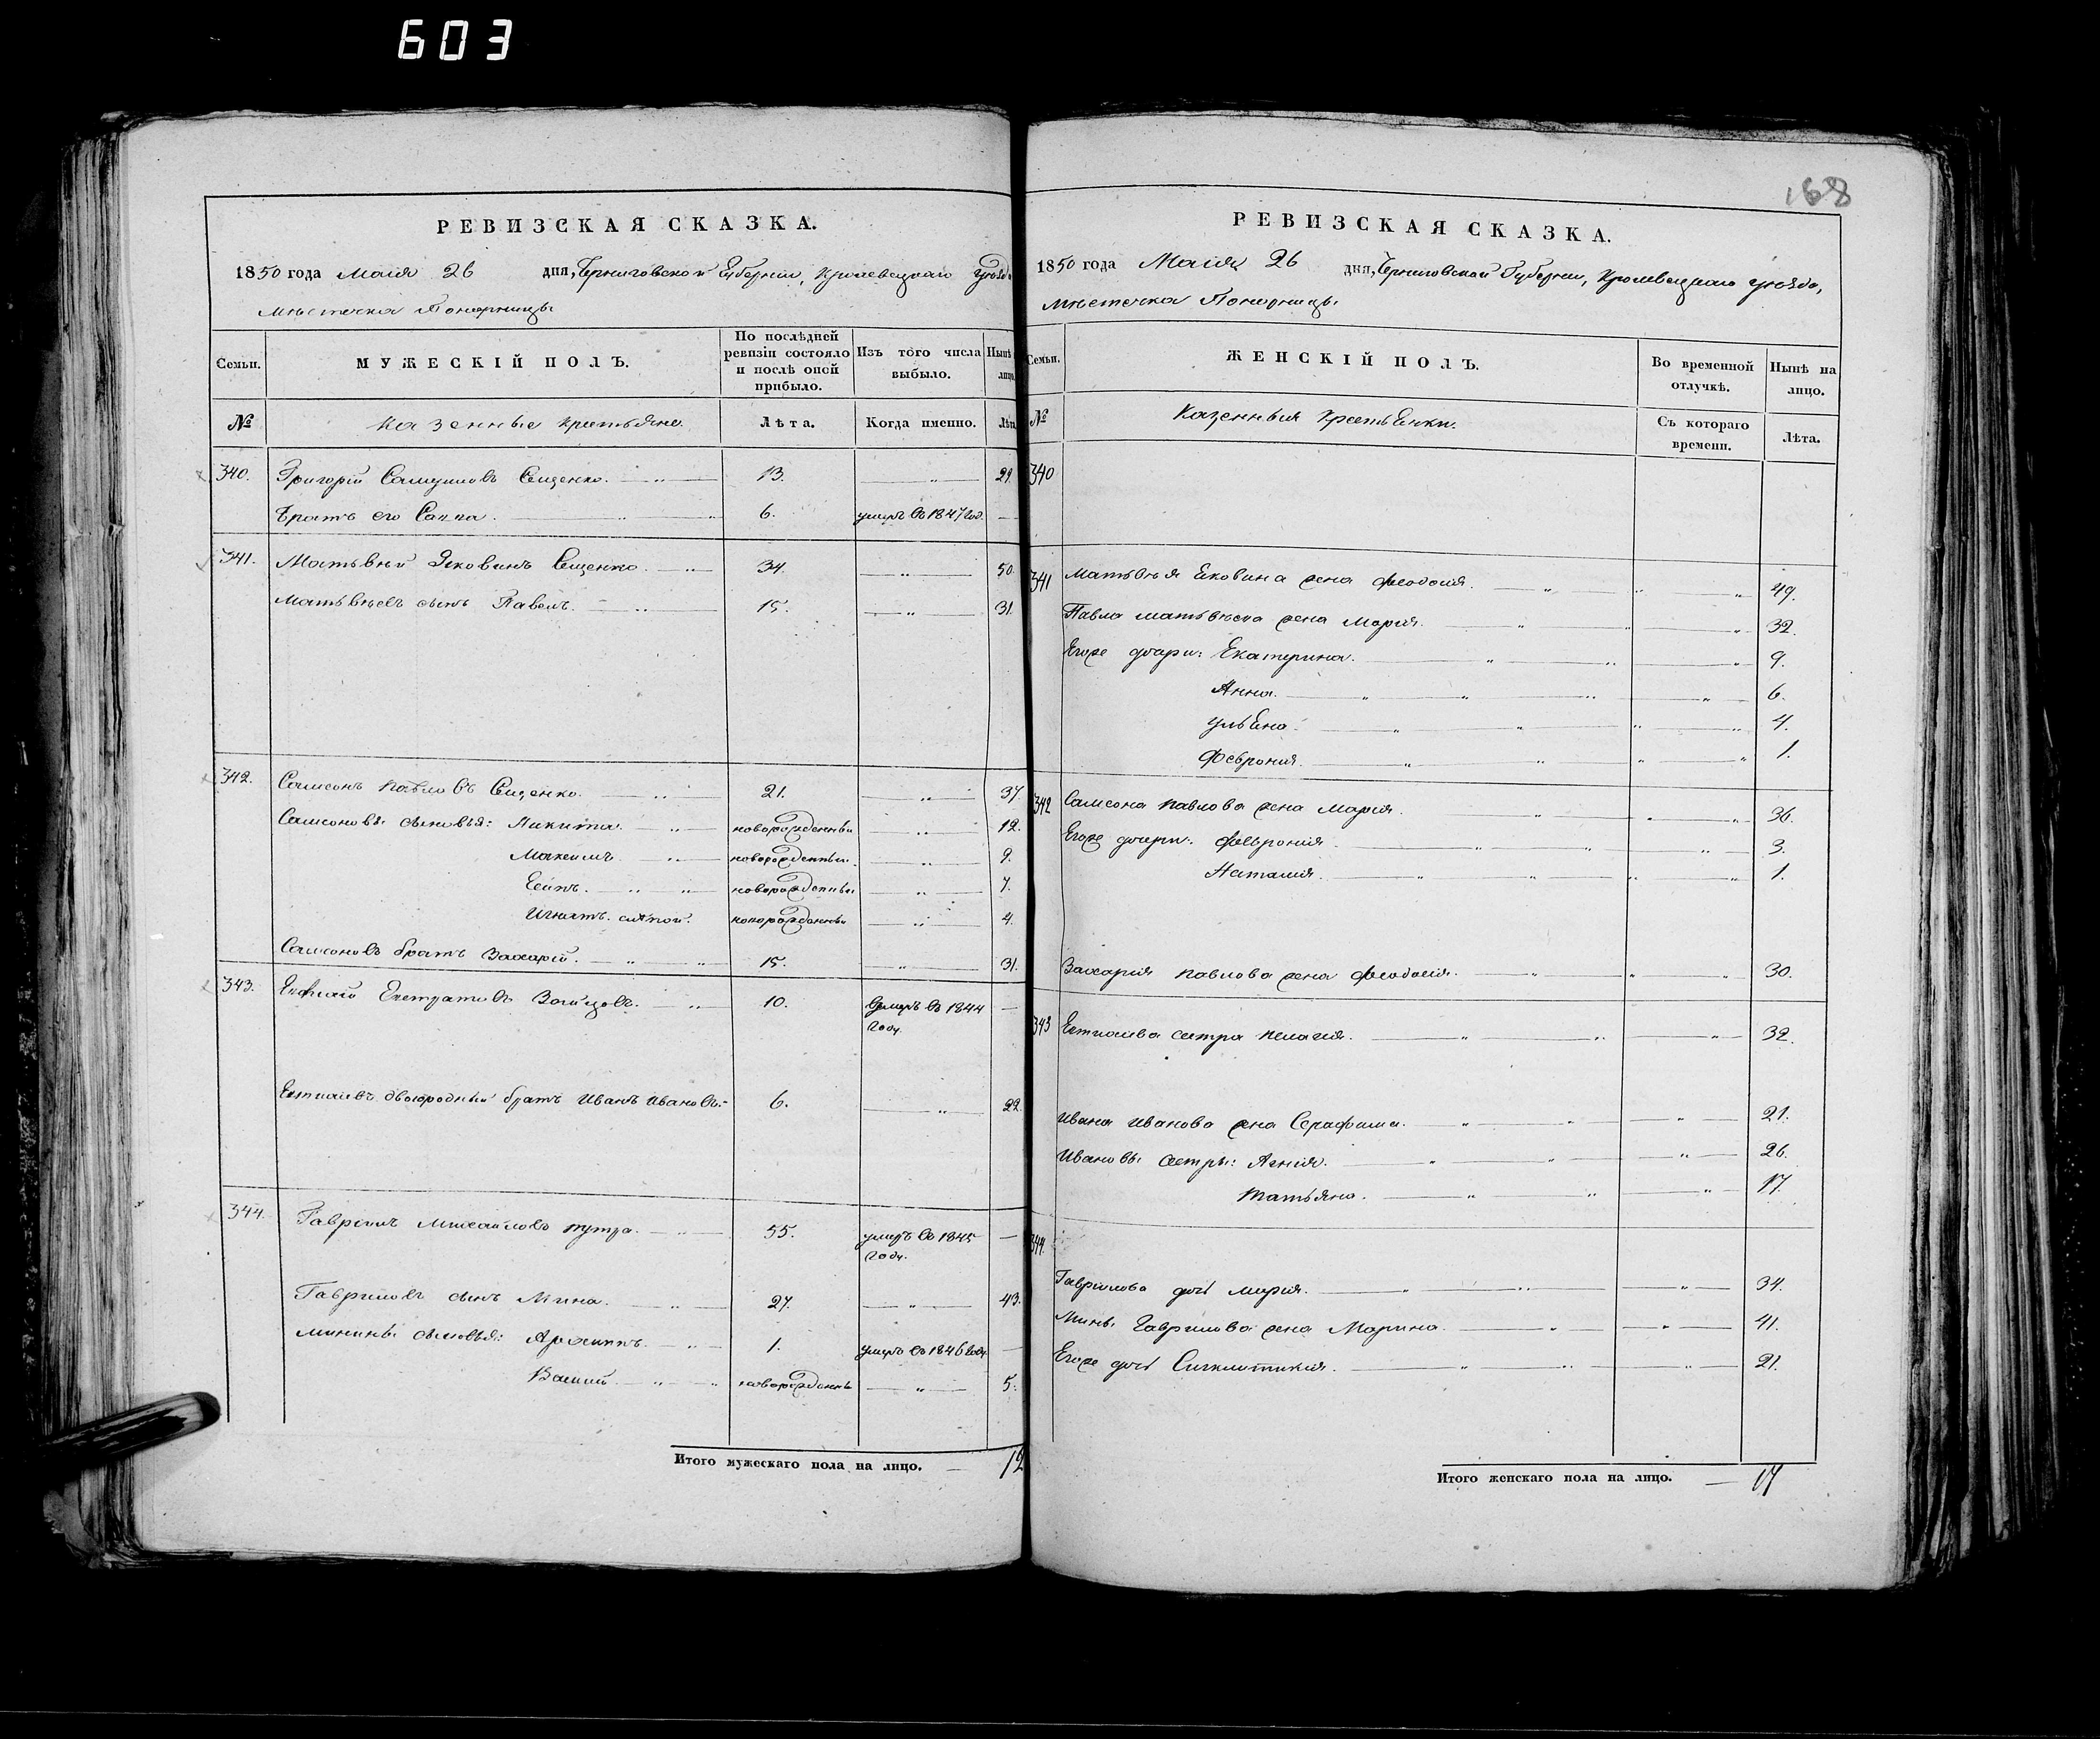 603
РЕВИЗСКАЯ СКАЗКА.
1850 года Маія 26 дня, Черниговской Губерніи, Кролевецкаго уѣзда
мѣстечка Понорницы
Семьи.
МУЖЕСКІЙ ПОЛЪ.
По послѣдней ревизіи состояло и послѣ оной прибыло.
Изъ того числа выбыло.
Нынѣ лицо.
№
Казенные крестьяне.
Лѣта.
Когда именно.
Лѣта
340. Григорій Сам Сященко. 13. 29.
Братъ его Савва. 6. умеръ въ 1847 год.
341. Матьвѣй Яковинъ Сященко 34. 50.
Матьвѣевъ сынъ Павелъ. 15. 31.
342. Самсонъ Павловъ Сященко. 21. 37.
Самсоновы сыновья: Никита. новорожденный 12.
Максимъ. новорожденный. 9.
новорожденный 7.
Игнатъ. новорожденный 4.
Самсоновъ братъ Захарій. 15. 31.
343. 10. умеръ въ 1844
году.
двоюродный братъ Иванъ Ивановъ. 6. 22.
344. Гавріилъ Михайловъ Путря. 55. умеръ въ 1845
году.
Гавриловъ сынъ Мина. 27. 43.
Минины сыновья: Архипъ. 1. умеръ въ 1846 году.
новорожденнъ 5.
Итого мужескаго пола на лицо. — 12
168
РЕВИЗСКАЯ СКАЗКА.
1850 года Маія 26 дня, Черниговской Губерніи, Кролевецкаго уѣзда,
мѣстечка Понорницы
Семьи.
ЖЕНСКІЙ ПОЛЪ.
Во временной отлучкѣ.
Нынѣ на лицо.
№
Казенныя крестьянки.
Съ котораго времени.
Лѣта.
340
341 Матьвѣя Яковина жена Феодосія. 49.
Павла Матьвѣева жена Марія. 32.
Егоже дочери: Екатерина. 9.
Анна. 6.
Ульяна. 4.
Феврония. 1.
342 Самсона Павлова жена Марія. 36.
Егоже дочери: Феврония 3.
Наталия. 1.
Захария Павлова жена Феодосія. 30.
343 сестра Пелагия. 32.
Ивана Иванова жена Серафима. 21.
Ивановы сестры: Агнія. 26.
Татьяна. 17.
344.
Гаврилова дочь Марія. 34.
Мины Гаврилова жена Марина. 41.
Егоже дочь Синклитикия. 21.
Итого женскаго пола на лицо. — 17